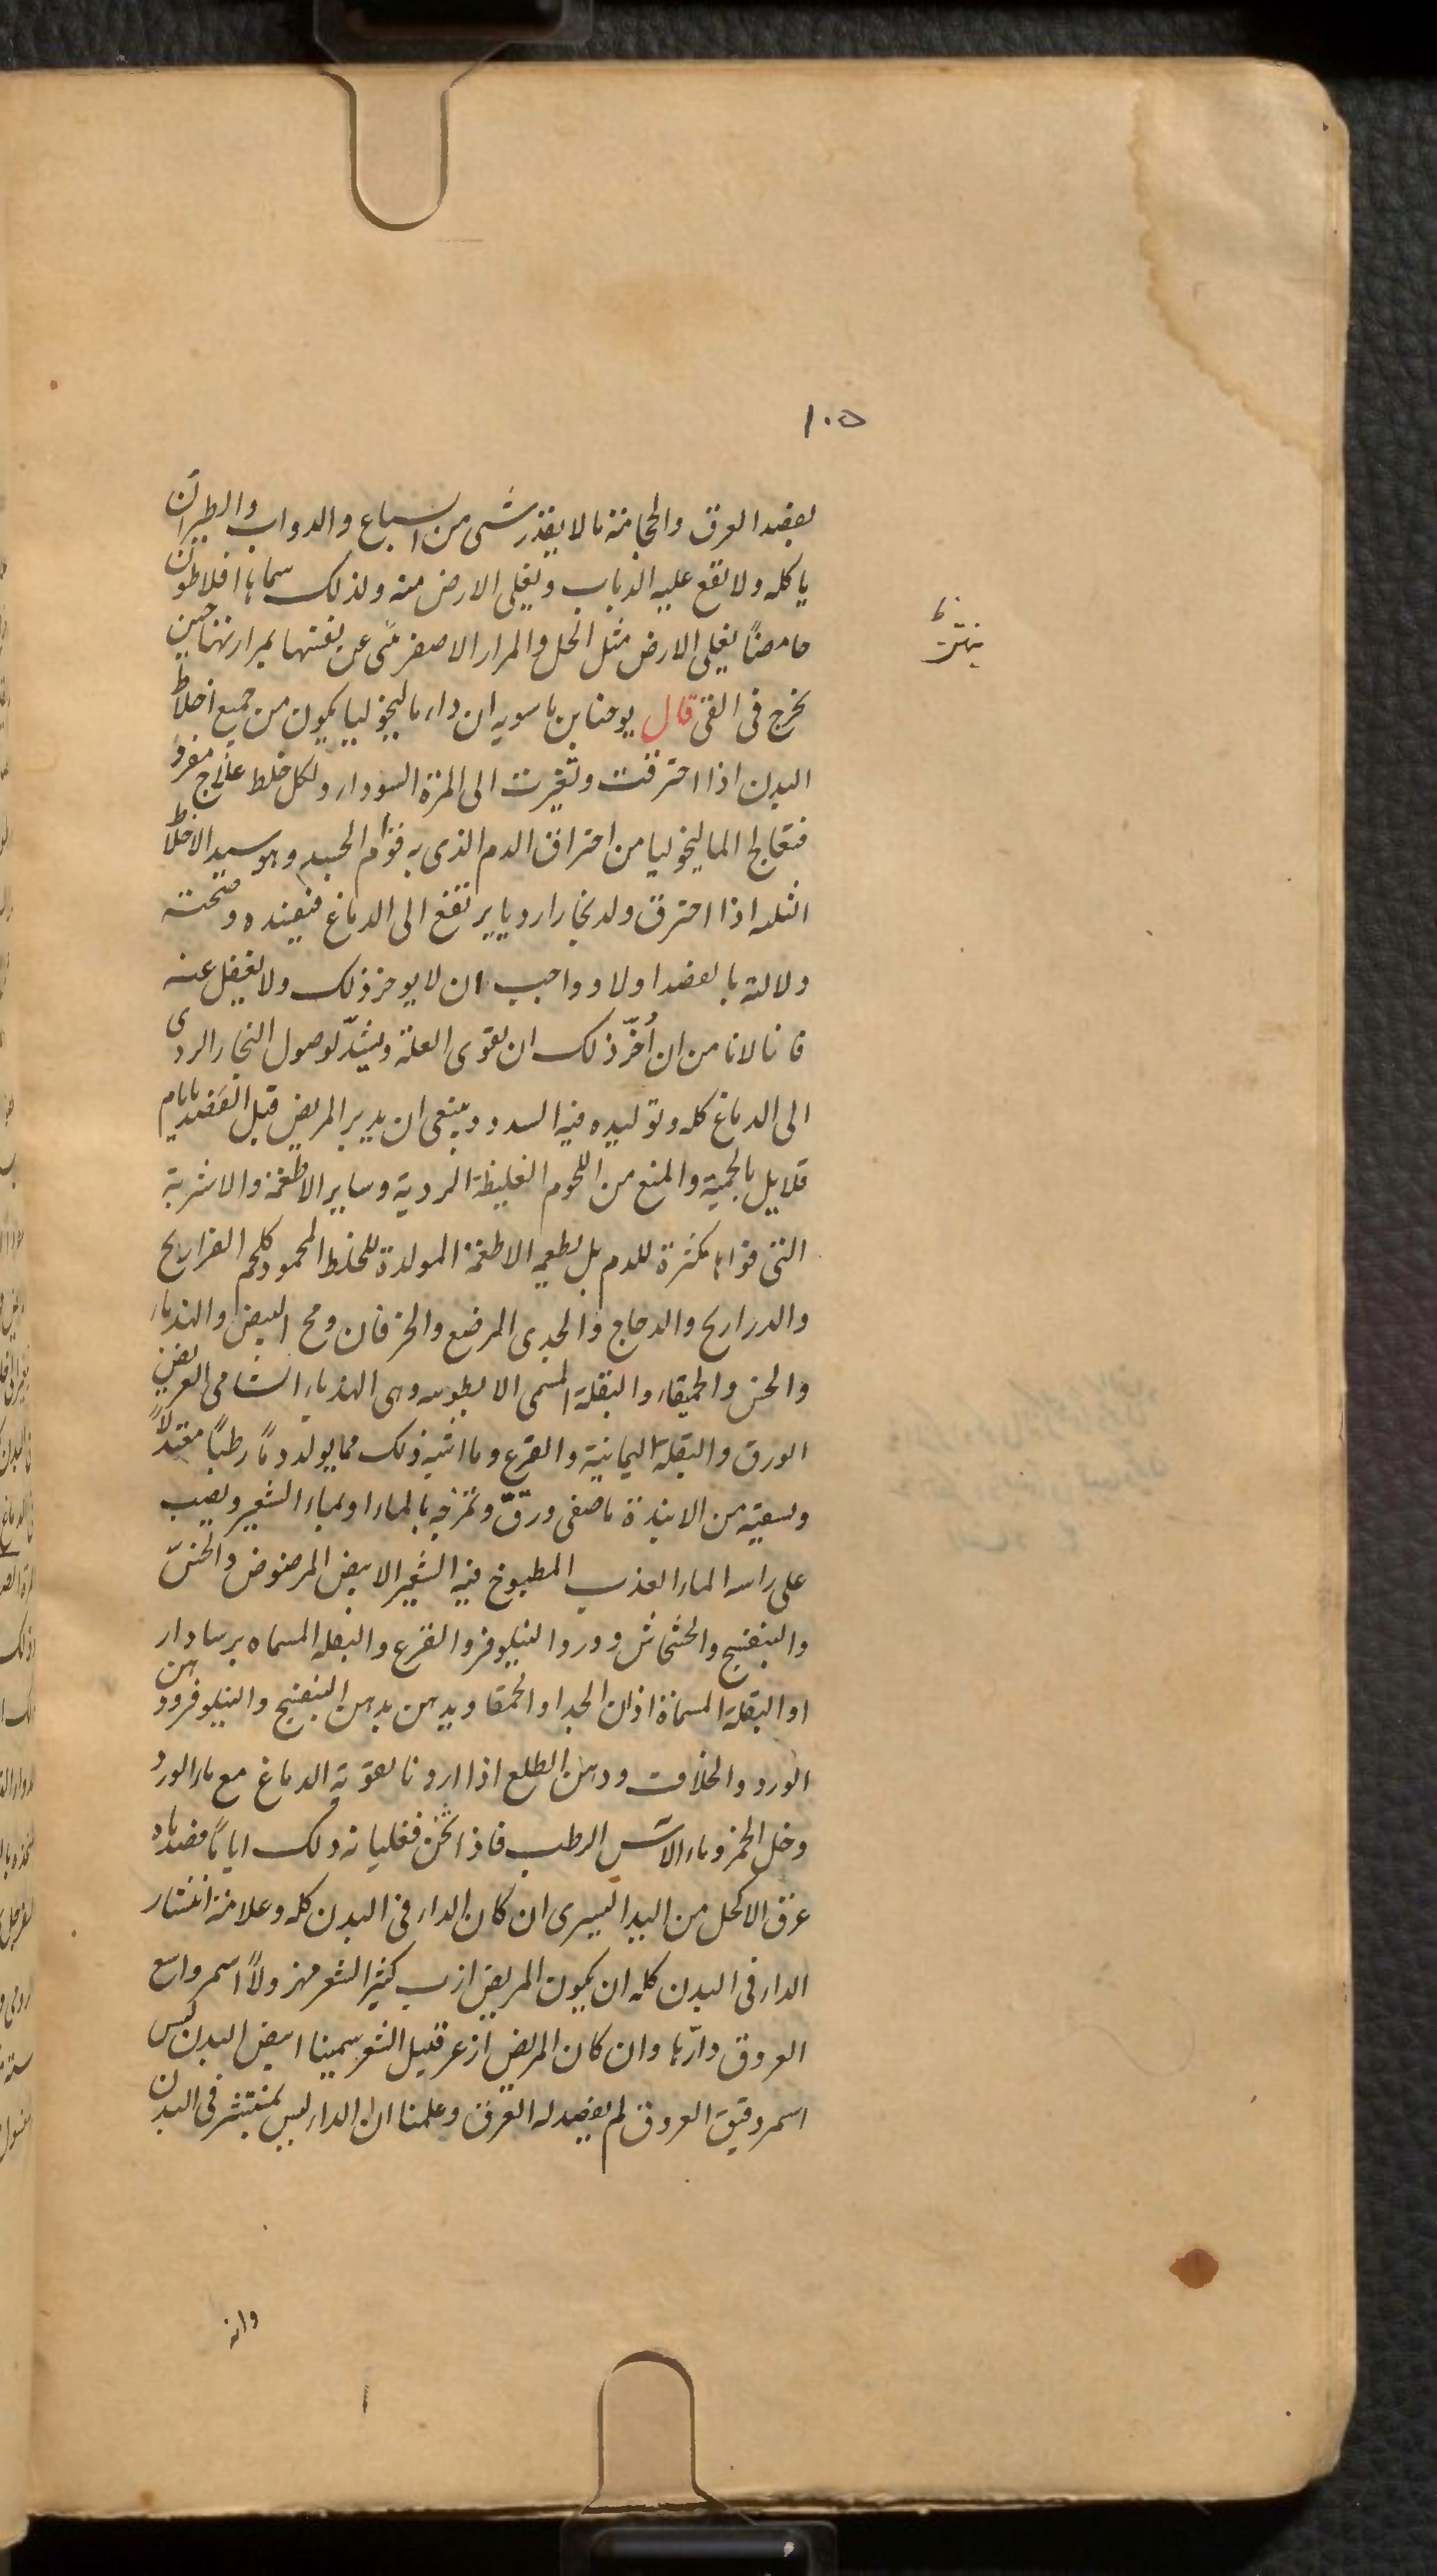 ١٠٥
بفصد العرق والحجامة ما لا يقذر شى من السباع والدواب والطير ان
ياكله ولا تقع عليه الذباب ويغلى الارض منه ولذلك سماها افلاطون
حامضاً يغلى الارض مثل الخل والمرار الاصفر متى عن بعنتها بمرارتها حين
يخرج فى القى قال يوحنا بن ماسويه ان داء ماليخوليا يكون من جميع اخلاط
البدن اذا احترقت وتغيرت الى المرة السوداء ولكل خلط علاج مفرد
فنعالج الماليخوليا من احتراق الدم الذى به قوام الجسد وهو سيد الاخلاط
الثلثه اذا احترق ولد بخارا رديا يرتفع الى الدماغ فيفسده و
ولالته بالفصد اولا وواجب ان لا يوخر ذلك ولا يغفل عنه
فانا لانا من ان أخّر ذلك ان تقوى العلة ويشتدّ لوصول البخار الردى
الى الدماغ كله وتوليده فيه السدد وينبغى ان يدبر المريض قبل الفصد بايام
قلايل بالحمية والمنع من اللحوم الغليظة الردية وساير الاطعمة والاشربة
التى قواها مكثرة للدم بل يطعم الاطعمة المولدة للخلط المحمود كلحم الفراريج
والدراريج والدجاج والجدى المرضع والخرفان ومح البيض والهندباء
والخس والحمقاء والبقلة المسمى الابطوسه وهى الهندباء الشامى العريض
الورق والبقلة اليمانية والقرع وما اشبه ذلك مما يولد دماً رطباً معتدلاً
ويسقيه من الانبذة ما صفى ورقّ وتمزجه بالماء او بماء الشعير ويصب
على راسه الماء العذب المطبوخ فيه الشعير الابيض المرضوض والخسّ
والبنفسج والخشخاش وورد النيلوفر والقرع والبقلة المسماه برسادار
او البقلة المسماة اذان الجدا والحمقا ويدهن بدهن البنفسج والنيلوفر ودهن
الورد والخلاف ودهن الطلع اذا اردنا تقوية الدماغ مع ماء الورد
وخل الخمر وماء الآس الرطب فاذا نحن فعلنا به ذلك اياماً فصدناه
عرق الاكحل من اليد اليسرى ان كان الداء فى البدن كله وعلامة انتشار
الداء فى البدن كله ان يكون المريض ازب كثير الشعر مهزولاً اسمر واسع
العروق دارّها وان كان المريض ازعر قليل الشعر سمينا ابيض البدن ليس
اسمر دقيق العروق لم يفصد له العرق وعلمنا ان الداء ليس بمنتشر فى البدن
وانه